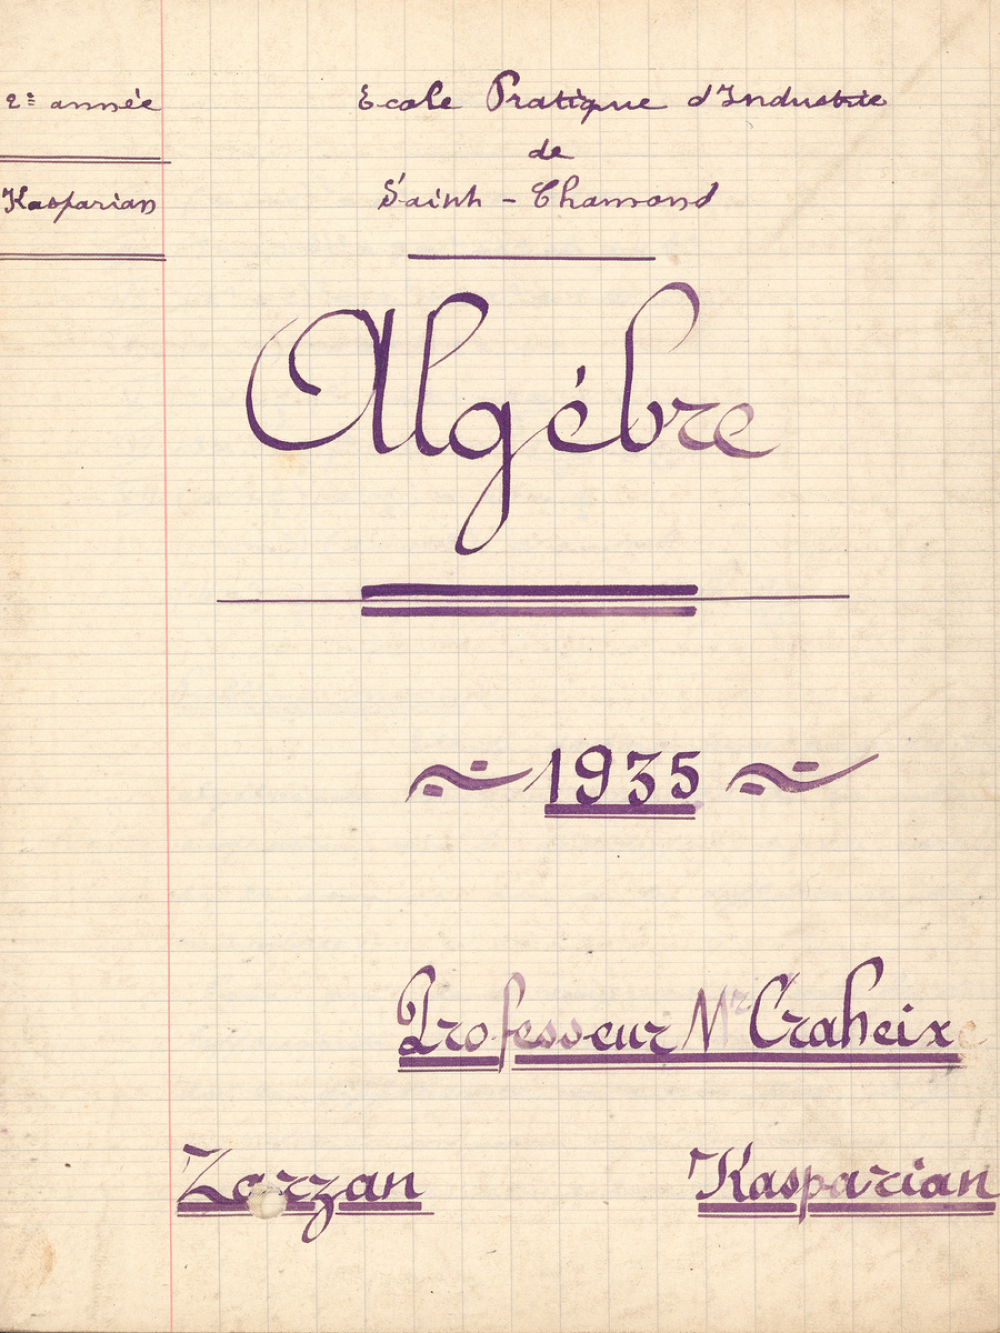 2e année
Kasparian
Ecole Pratique d'Industrie
de
Saint - Chamond
Algébre
1935
Professeur Mr Craheix
Zarzan Kasparian